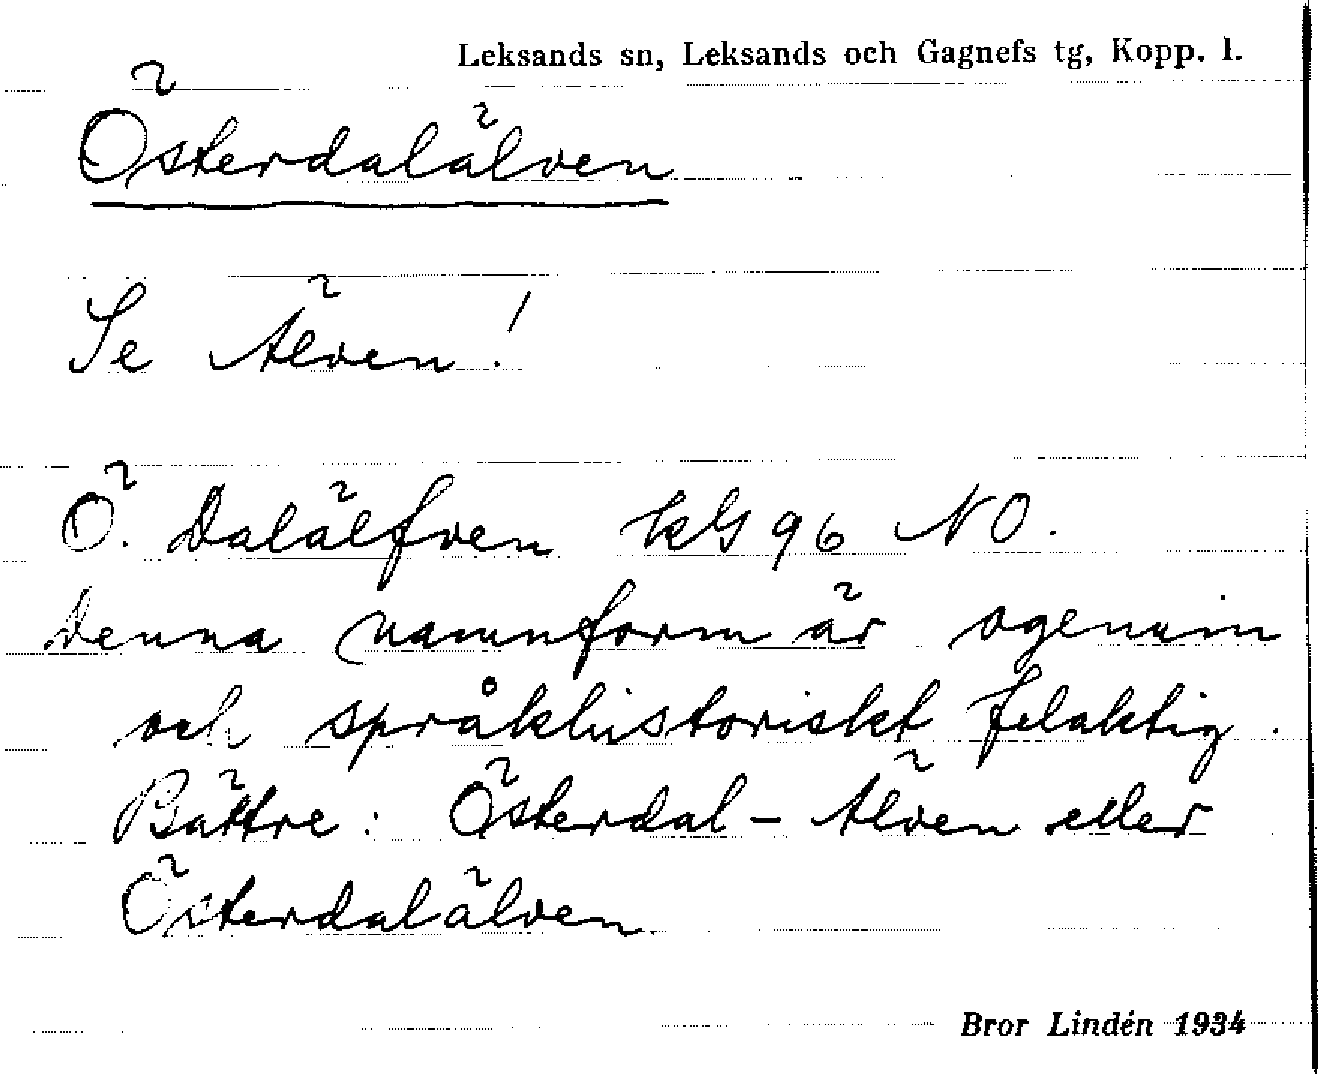 Leksands sn, Leksands och Gagnefs tg, Kopp. l.
Österdalälven
Se Älven!
Ö. Dalälfven kG 96 NO.
Denna namnform är ogenuin
och språkhistoriskt felaktig.
Bättre: Österdal-Älven eller
Österdalälven
Bror Lindén 1934